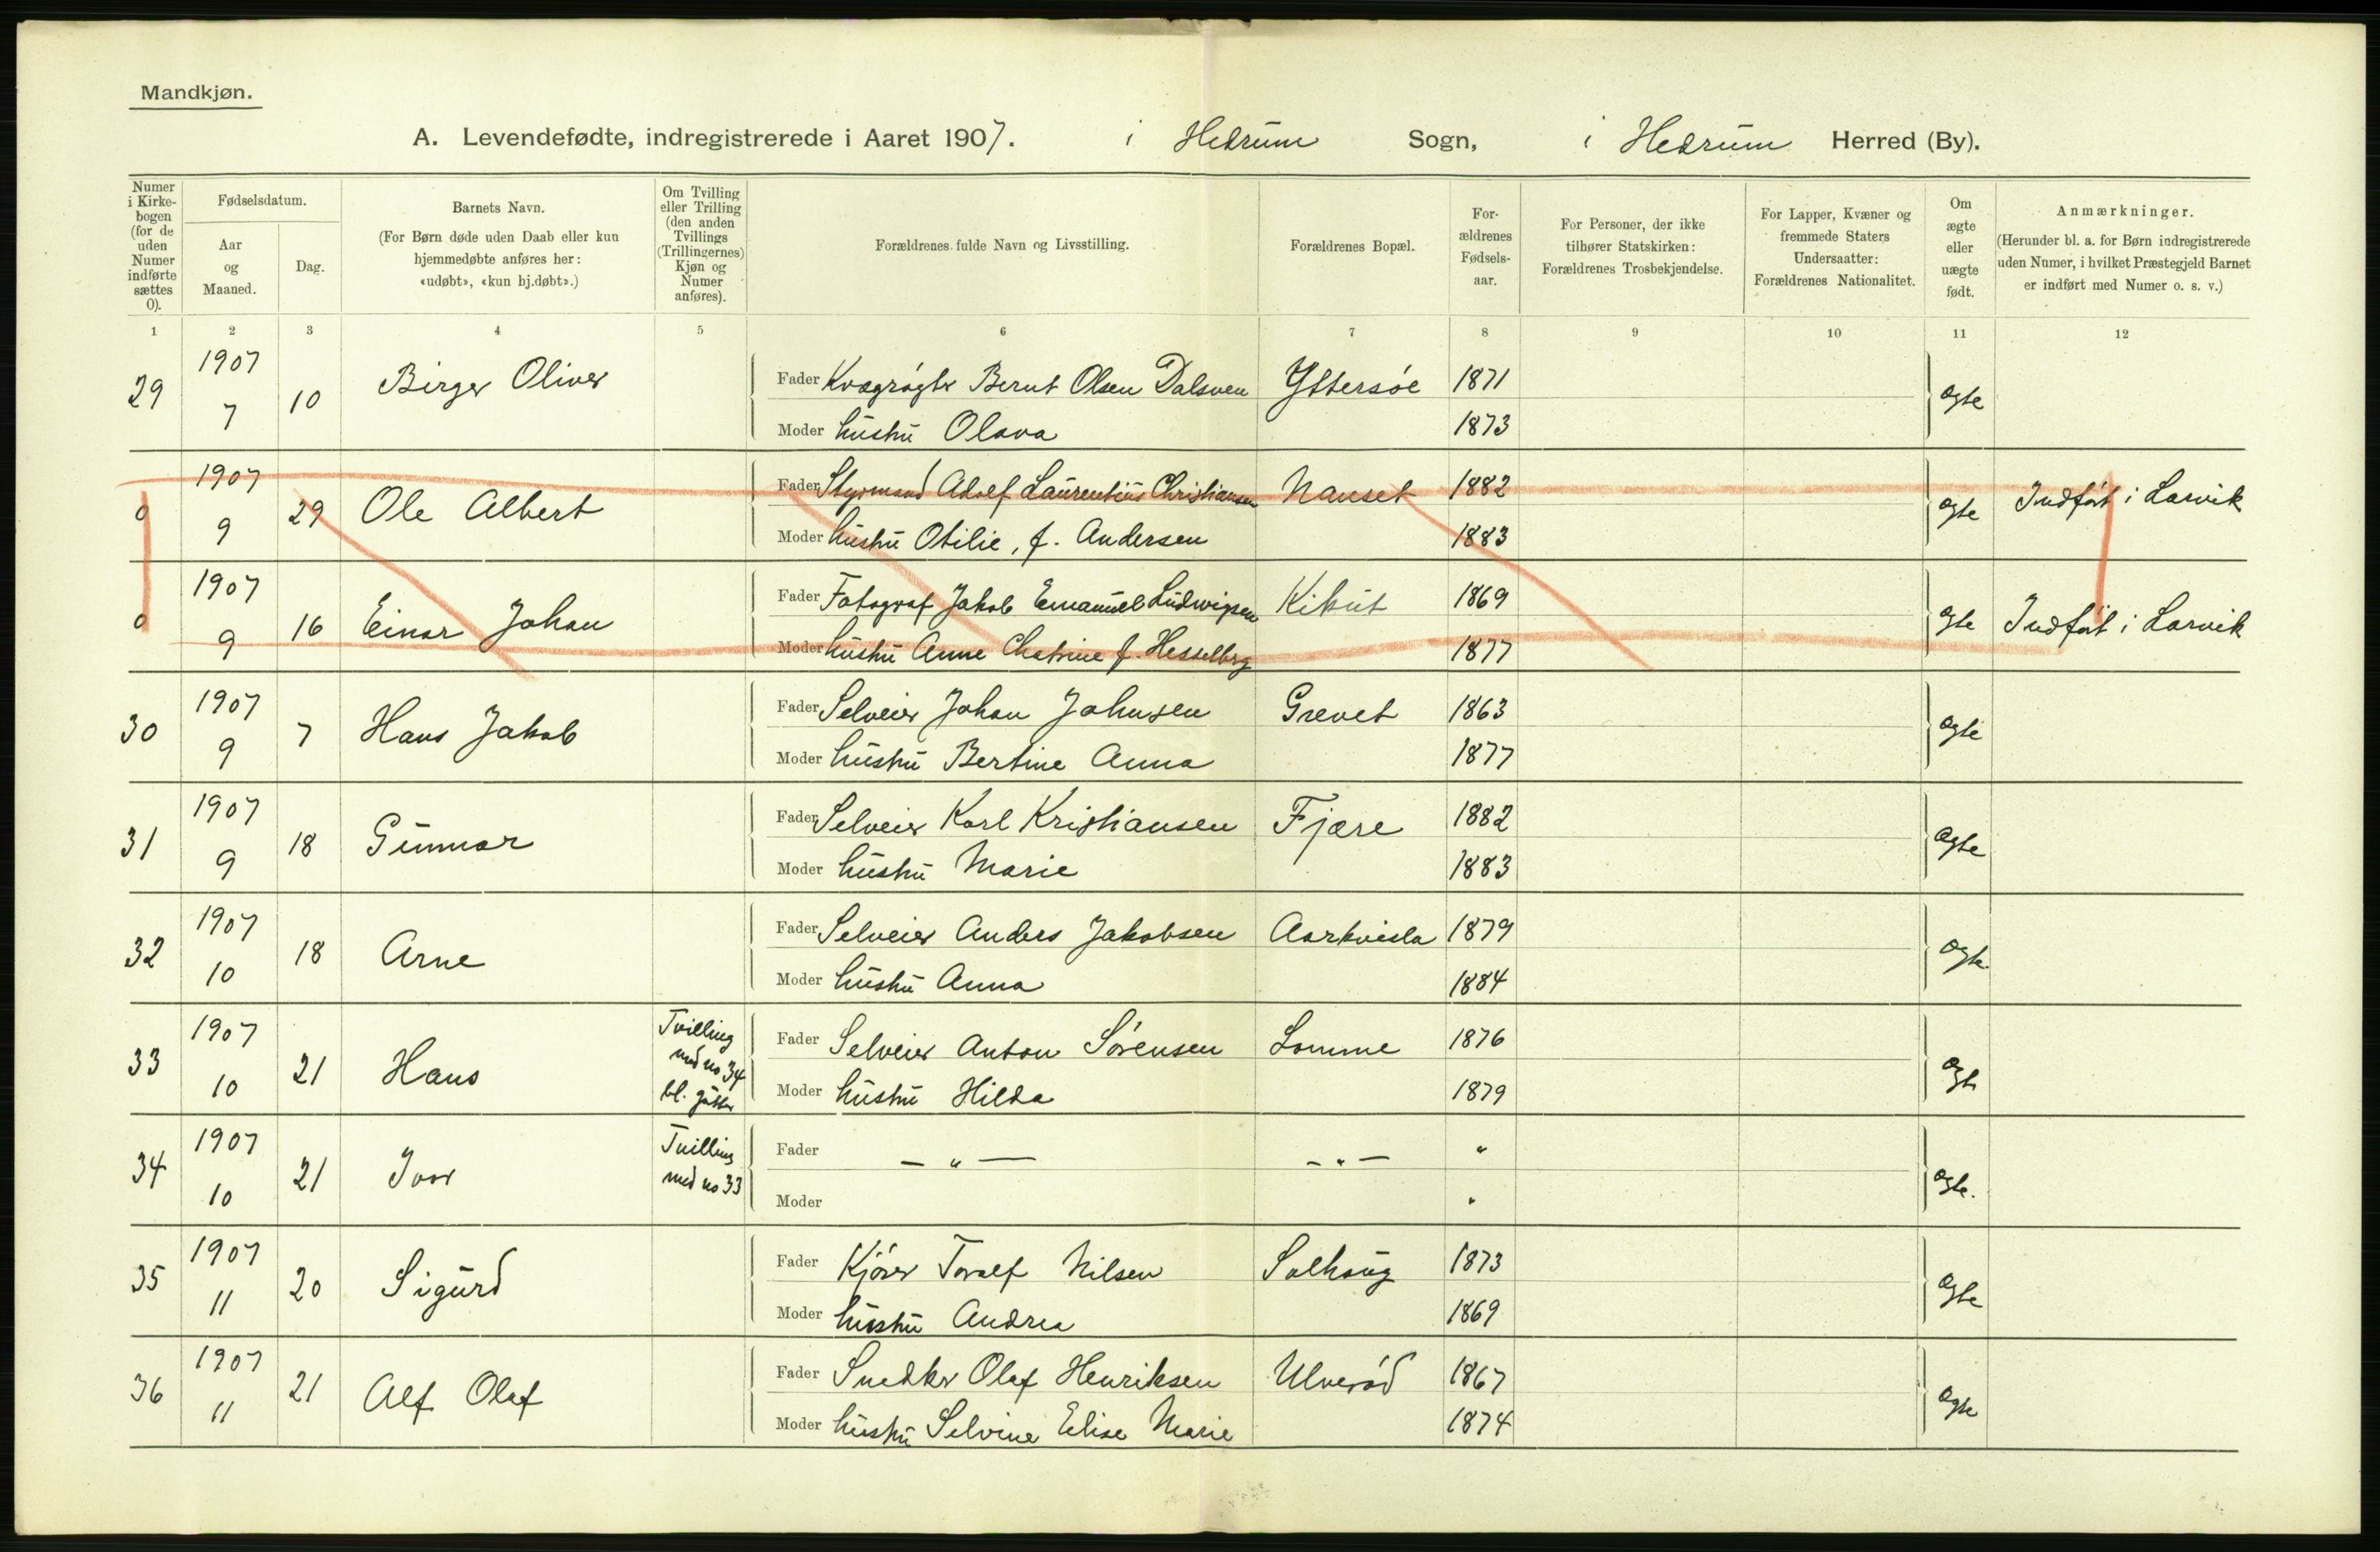 Mandkjøn.
A. Levendefødte, indregistrerede i Aaret 1907. i Hedrum Sogn, i Hedrum Herred (By).
Numer i Kirkebogen (for de uden Numer indførte sættes 0).
Fødselsdatum.
Aar og Maaned.
Dag.
Barnets Navn.
(For Børn døde uden Daab eller kun hjemmedøbte anføres her: «udøbt», «kun hj.døbt».)
Om Tvilling eller Trilling (den anden Tvillings (Trillingernes) Kjøn og Numer anføres).
Forældrenes fulde Navn og Livsstilling.
Forældrenes Bopæl.
Forældrenes Fødselsaar.
For Personer, der ikke tilhører Statskirken: Forældrenes Trosbekjendelse.
For Lapper, Kvæner og fremmede Staters Undersaatter: Forældrenes Nationalitet.
Om ægte eller uægte født.
Anmærkninger.
(Herunder bl. a. for Børn indregistrerede uden Numer, i hvilket Præstegjeld Barnet er indført med Numer o. s. v.)
1 2 3 4 5 6 7 8 9 10 11 12
29 1907 7 10 Birger Oliver Fader Kvægrøgter Bernt Olsen Dalsven Yttersøe 1871 ægte
Moder hustru Olava 1873
0 1907 9 29 Ole Albert Fader Styrmand Adolf Laurentius Christiansen Nanset 1882 ægte Indført i Larvik
Moder hustru Otilie, f. Andersen 1883
0 1907 9 16 Einar Johan Fader Fotograf Jakob Emanuel Ludwigsen Kikut 1869 ægte Indført i Larvik
Moder hustru Anne Chatrine f. Hesselberg 1877
30 1907 9 7 Hans Jakob Fader Selveier Johan Johnsen Grevet 1863 ægte
Moder hustru Bertine Anna 1877
31 1907 9 18 Gunnar Fader Selveier Karl Kristiansen Fjære 1882 ægte
Moder hustru Marie 1883
32 1907 10 18 Arne Fader Selveier Anders Jakobsen Aarkvisla 1879 ægte
Moder hustru Anna 1884
33 1907 10 21 Hans Tvilling med no 34 bl. gutter Fader Selveier Anton Sørensen Lomme 1876 ægte
Moder hustru Hilda 1879
34 1907 10 21 Ivar Tvilling med no 33 Fader — " — — " — " ægte.
Moder "
35 1907 11 20 Sigurd Fader Kjører Toralf Nilsen Solhaug 1873 ægte
Moder hustru Andrea 1869
36 1907 11 21 Alf Olaf Fader Snedker Olaf Henriksen Ulverød 1867 ægte
Moder hustru Selvine Elise Marie 1874